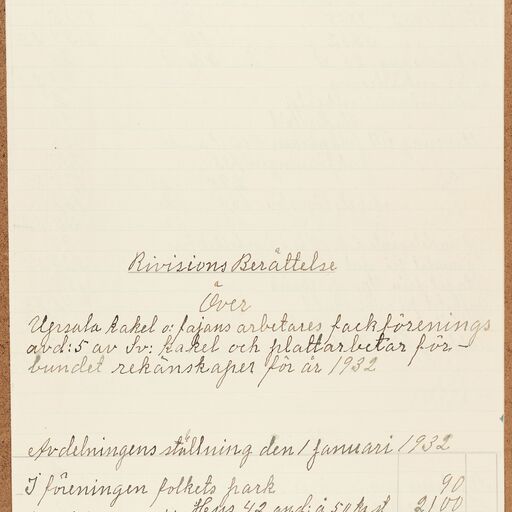 Rivisions Berättelse
Över
Upsala kakel o: fajans arbetares fackförenings
avd: 5 av Sv: kakel och plattarbetar för-
bundet rekänskaper för år 1932
Avdelningens ställning den 1 Januari 1932
I föreningen folkets park 90
Hus 42 and: á 50 kr st 2100